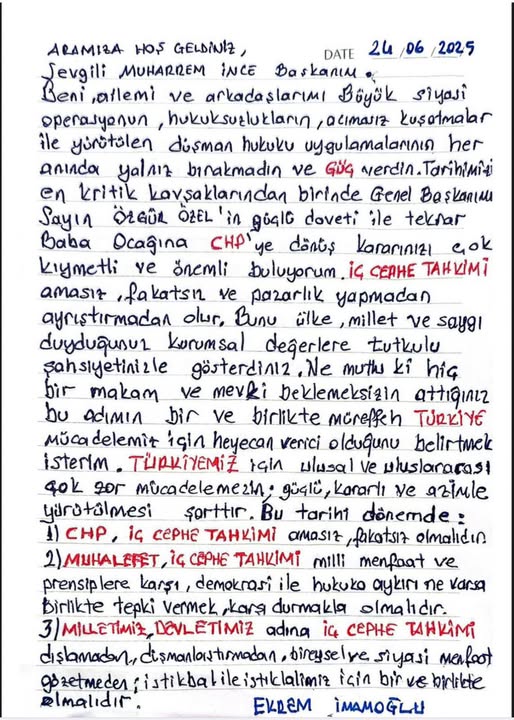 ARAMIZA HOŞ GELDİNİZ,
DATE 24/06/2025
Sevgili MUHARREM İNCE Başkanım.
Beni, ailemi ve arkadaşlarımı Büyük siyasi
operasyonun, hukuksuzlukların, acımasız kuşatmalar
ile yürütülen düşman hukuku uygulamalarının her
anında yalnız bırakmadın ve GÜÇ verdin. Tarihimizi
en kritik kavşaklarından birinde Genel Başkanımı
Sayın ÖZGÜR ÖZEL'in güçlü daveti ile tekrar
Baba Ocağına CHP'ye dönüş kararınızı çok
kıymetli ve önemli buluyorum. İÇ CEPHE TAHKİMİ
amasız, fakatsız ve pazarlık yapmadan
ayrıştırmadan olur. Bunu ülke, millet ve saygı
duyduğunuz kurumsal değerlere tutkulu
şahsiyetinizle gösterdiniz. Ne mutlu ki hiç
bir makam ve mevki beklemeksizin attığınız
bu adımın bir ve birlikte müreffeh TÜRKİYE
mücadelemiz için heyecan verici olduğunu belirtmek
isterim. TÜRKİYEMİZ için ulusal ve uluslararası
çok zor mücadelemizin; güçlü, kararlı ve azimle
yürütülmesi şarttır. Bu tarihi dönemde:
1) CHP, İÇ CEPHE TAHKİMİ amasız, fakatsız olmalıdır.
2) MUHALEFET, İÇ CEPHE TAHKİMİ milli menfaat ve
prensiplere karşı, demokrasi ile hukuka aykırı ne varsa
birlikte tepki vermek, karşı durmakla olmalıdır.
3) MİLLETİMİZ, DEVLETİMİZ adına İÇ CEPHE TAHKİMİ
dışlamadan, düşmanlaştırmadan, bireysel ve siyasi menfaat
gözetmeden; istikbal ile istiklalimiz için bir ve birlikte
olmalıdır. EKREM İMAMOĞLU